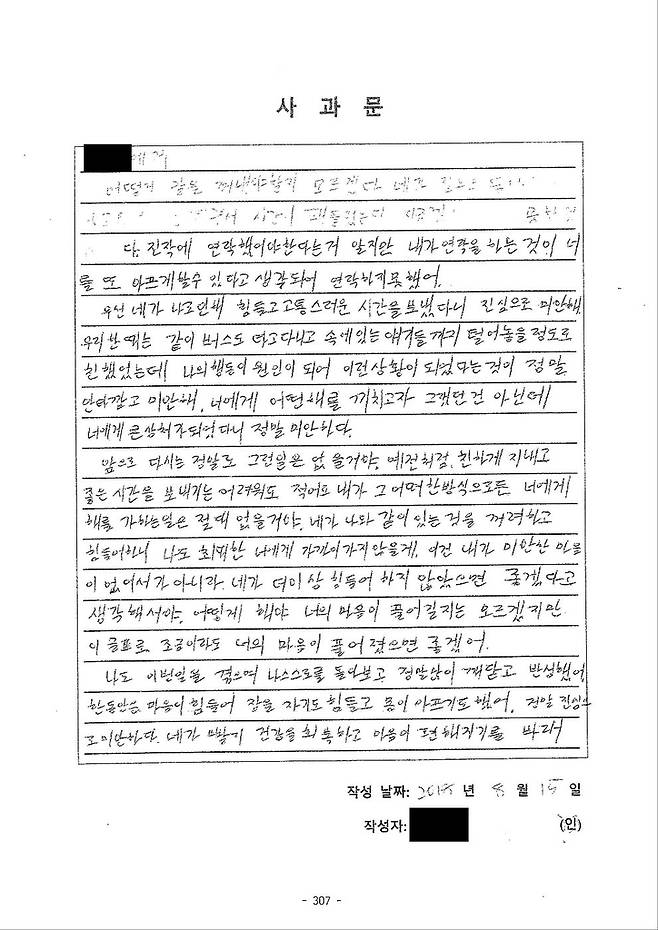 사 과 문
에게
어떻게 말을 꺼내야할지 모르겠다
다 진작에 연락했어야한다는거 알지만 내가 연락을 하는 것이 너
를 또 아프게할수 있다고 생각되어 연락하지못했어.
우선 네가 나로인해 힘들고고통스러운 시간을 보냈다니 진심으로 미안해.
우리 한때는 같이 버스도 타고다니고 속에있는 얘기들 까지 털어놓을 정도로
친했었는데 나의행동이 원인이 되어 이런 상황이 되었다는것이 정말
안타깝고 미안해. 너에게 어떤해를 끼치고자 그랬던건 아닌데
너에게 큰상처가되었다니 정말 미안하다.
앞으로 다시는 정말로 그런일은 없을거야. 예전처럼, 친하게 지내고
좋은 시간을 보내기는 어려워도 적어도 내가 그 어떠한방식으로든 너에게
해를 가하는일은 절대 없을거야. 네가 나와 같이 있는 것을 꺼려하고
힘들어하니 나도 최대한 너에게 가까이가지않을게. 이건 내가 미안한 마음
이 없어서가 아니라. 네가 더이상 힘들어 하지 않았으면 좋겠다고
생각해서야. 어떻게 해야 너의 마음이 풀어질지는 모르겠지만
이 글로 조금이라도 너의 마음이 풀어졌으면 좋겠어.
나도 이번일을 겪으며 나스스로를 돌아보고 정말많이 깨닫고 반성했어
한동안은 마음이 힘들어 잠을 자기도 힘들고 몸이 아프기도 했어. 정말 진심으
로 미안하다. 네가 빨리 건강을 회복하고 마음이 편해지기를 바라
작성 날짜: 2018 년 8 월 15 일
작성자: (인)
- 307 -